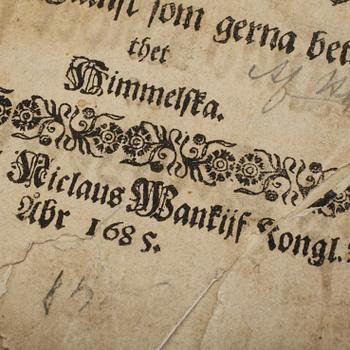 som gerna
thet
Himmelska.
Niclaus Wankijf Kongl.
Åhr 1685.